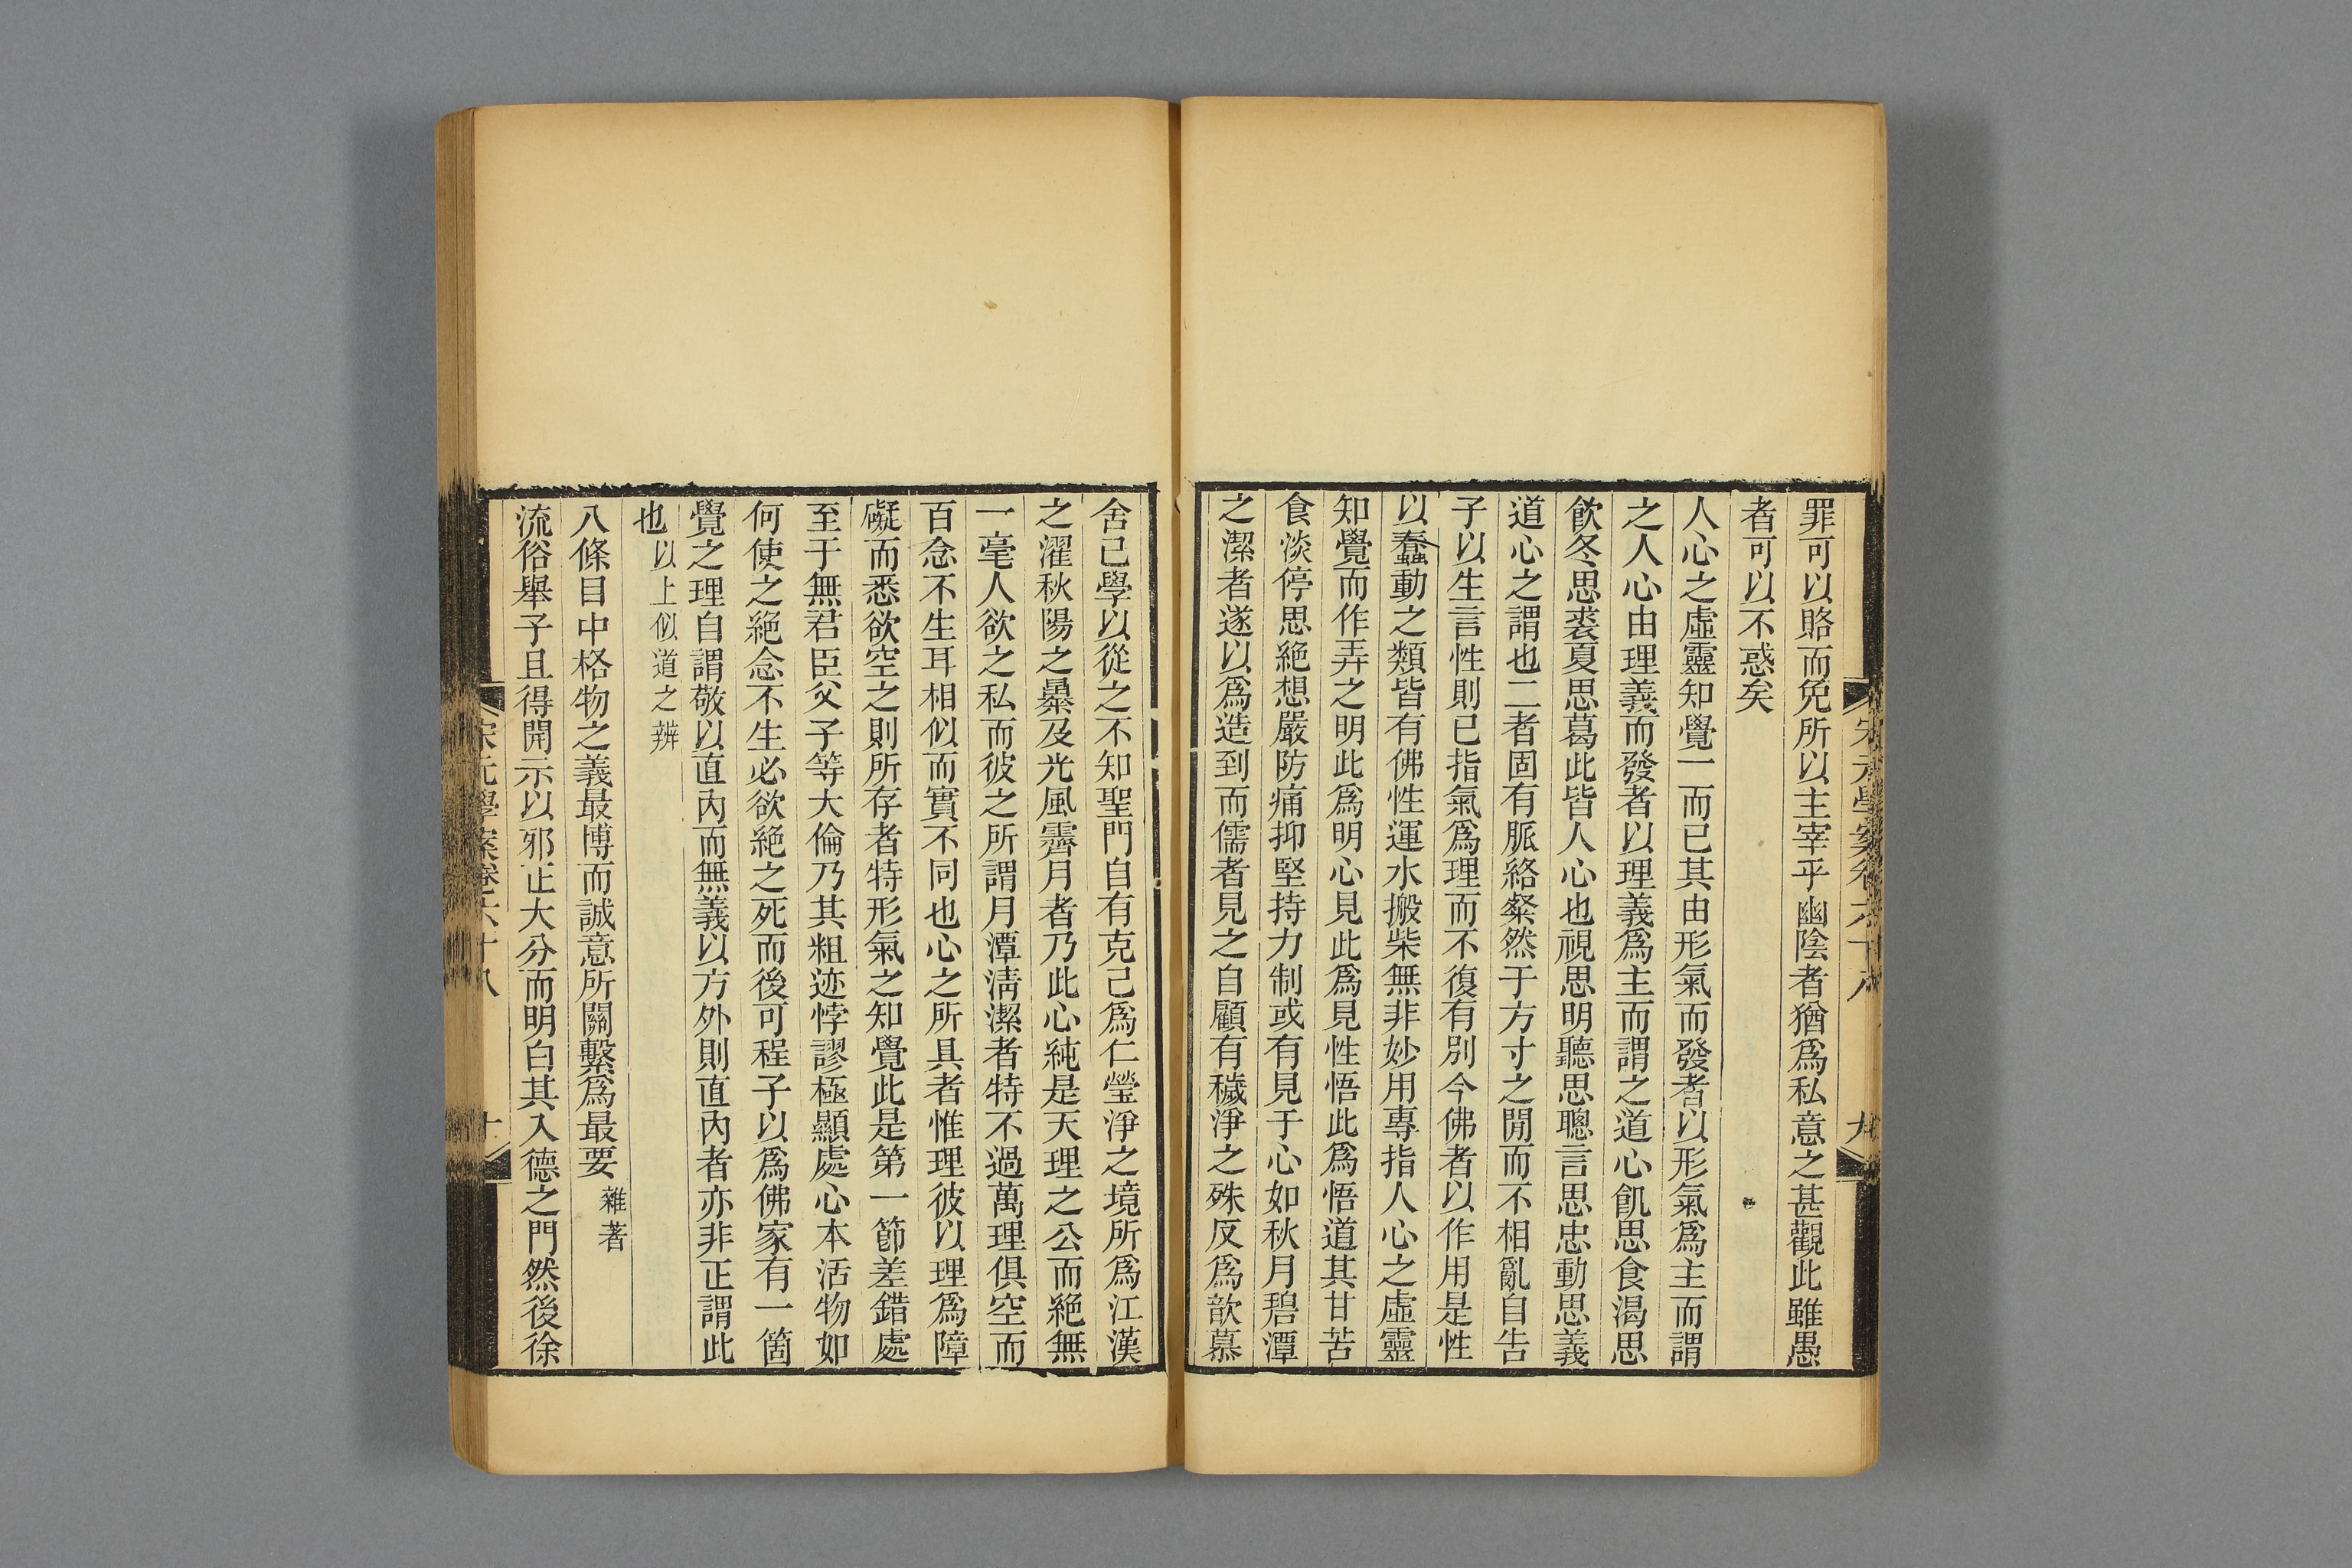 罪可以賂而免所以主宰乎幽陰者猶爲私意之甚觀此雖愚
者可以不惑矣
人心之虛靈知覺一而已其由形氣而發者以形氣爲主而謂
之人心由理義而發者以理義爲主而謂之道心飢思食渴思
飲冬思裘夏思葛此皆人心也視思明聽思聰言思忠動思義
道心之謂也二者固有脈絡粲然于方寸之閒而不相亂自告
子以生言性則已指氣爲理而不復有別今佛者以作用是性
以蠢動之類皆有佛性運水搬柴無非妙用專指人心之虛靈
知覺而作弄之明此爲明心見此爲見性悟此爲悟道其甘苦
食淡停思絕想嚴防痛抑堅持力制或有見于心如秋月碧潭
之潔者遂以爲造到而儒者見之自顧有穢淨之殊反爲歆慕
舍己學以從之不知聖門自有克己爲仁瑩淨之境所爲江漢
之濯秋陽之暴及光風霽月者乃此心純是天理之公而絕無
一毫人欲之私而彼之所謂月潭淸潔者特不過萬理俱空而
百念不生耳相似而實不同也心之所具者惟理彼以理爲障
礙而悉欲空之則所存者特形氣之知覺此是第一節差錯處
至于無君臣父子等大倫乃其粗迹悖謬極顯處心本活物如
何使之絕念不生必欲絕之死而後可程子以爲佛家有一箇
覺之理自謂敬以直內而無義以方外則直內者亦非正謂此
也以上似道之辨
八條目中格物之義最博而誠意所關繫爲最要雜著
流俗舉子且得開示以邪正大分而明白其入德之門然後徐
宋元學案卷六十八
十